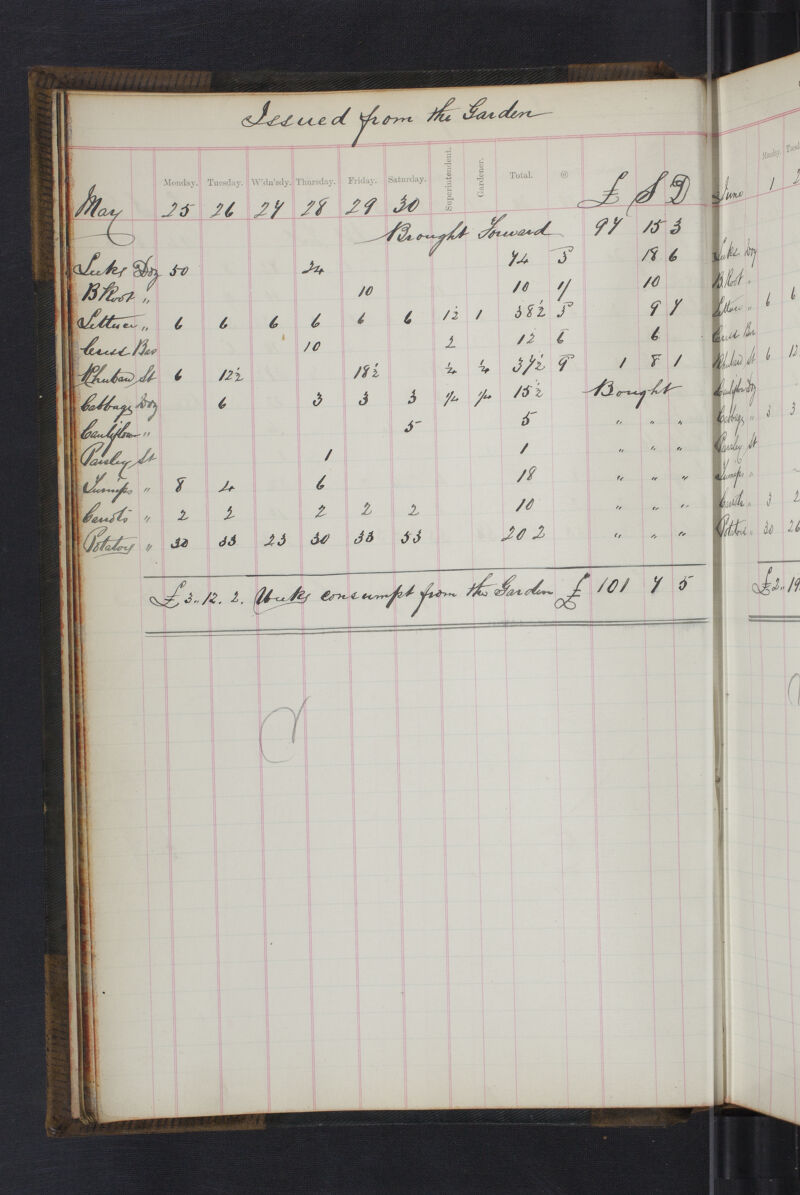 Issued from the Garden
Monday. Tuesday. W'dn'sdy. Thursday. Friday. Saturday. Superintendent. Gardener. Total. @ £ S D
May 25 26 27 28 29 30
Brought Forward 97 15 3
Leeks Doz 50 24 74 3 18 6
B Root " 10 10 1/ 10
Lettuce " 6 6 6 6 6 6 1½ 1 38½ 3 9 7
Cress Bas 10 2 12 6 6
Rhubarb St 6 12½ 18½ ¼ ¼ 37½ 9 1 8 1
Cabbage Doz 6 3 3 3 ¼ ¼ 15½ Bought
Cauliflower " 5 5 " " "
Parsley St 1 1 " " "
Turnips " 8 4 6 18 " " "
Carrots " 2 2 2 2 2 10 " " "
Potatoes " 30 33 23 30 33 53 202 " " "
£3.. 12. 2. Weeks consumpt from the Garden £ 101 7 5
Monday.
June 1 2
Leeks Doz
B Root "
Lettuce " 6 6
Cress Bas
Rhubarb St 6 12
Cauliflower Doz
Cabbage " 3 3
Parsley St
Turnips "
Carrots " 3 2
Potatoes " 30 26
£2.. 19.